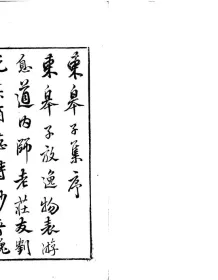 東皋子集序
東皋子放逸物表游
息道內師老莊友劉